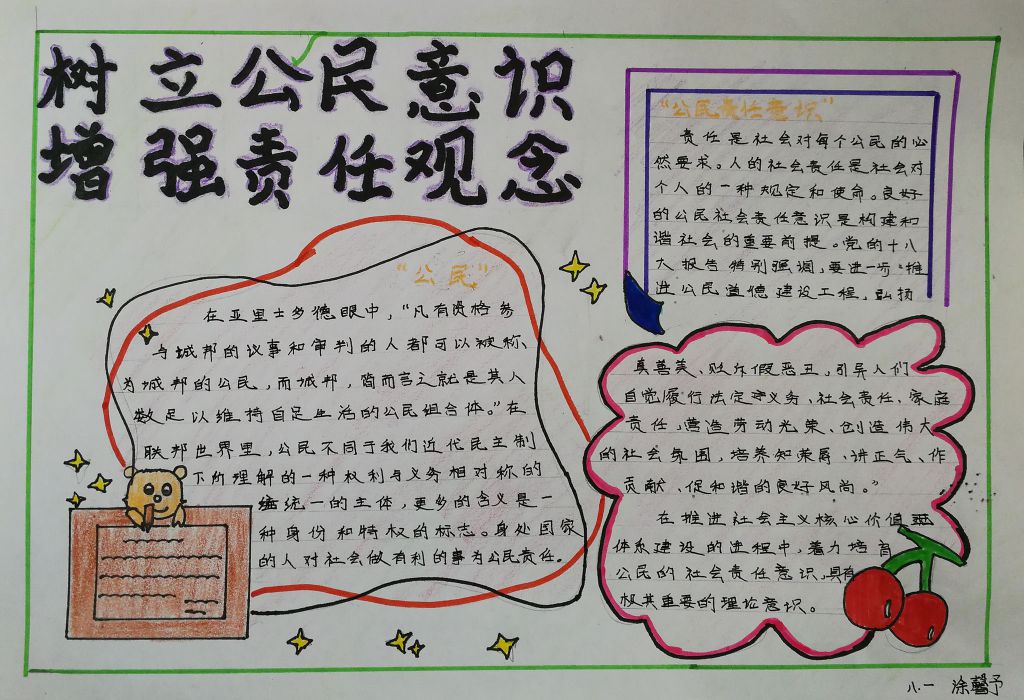 树立公民意识
增强责任观念
“公民”
在亚里士多德眼中，“凡有资格参
与城邦的议事和审判的人都可以被称
为城邦的公民，而城邦，简而言之就是其人
数足以维持自足生活的公民组合体。”在
联邦世界里，公民不同于我们近代民主制
下所理解的一种权利与义务相对称的
统一的主体，更多的含义是一
种身份和特权的标志。身处国家
的人对社会做有利的事为公民责任。
“公民责任意识”
责任是社会对每个公民的必
然要求。人的社会责任是社会对
个人的一种规定和使命。良好
的公民社会责任意识是构建和
谐社会的重要前提。党的十八
大报告特别强调，要进一步“推
进公民道德建设工程，弘扬
真善美、贬斥假恶丑，引导人们
自觉履行法定义务、社会责任、家庭
责任，营造劳动光荣、创造伟大
的社会氛围，培养知荣辱、讲正气、作
贡献、促和谐的良好风尚。”
在推进社会主义核心价值观
体系建设的进程中，着力培育
公民的社会责任意识，具有
极其重要的理论意识。
八.一 涂馨予